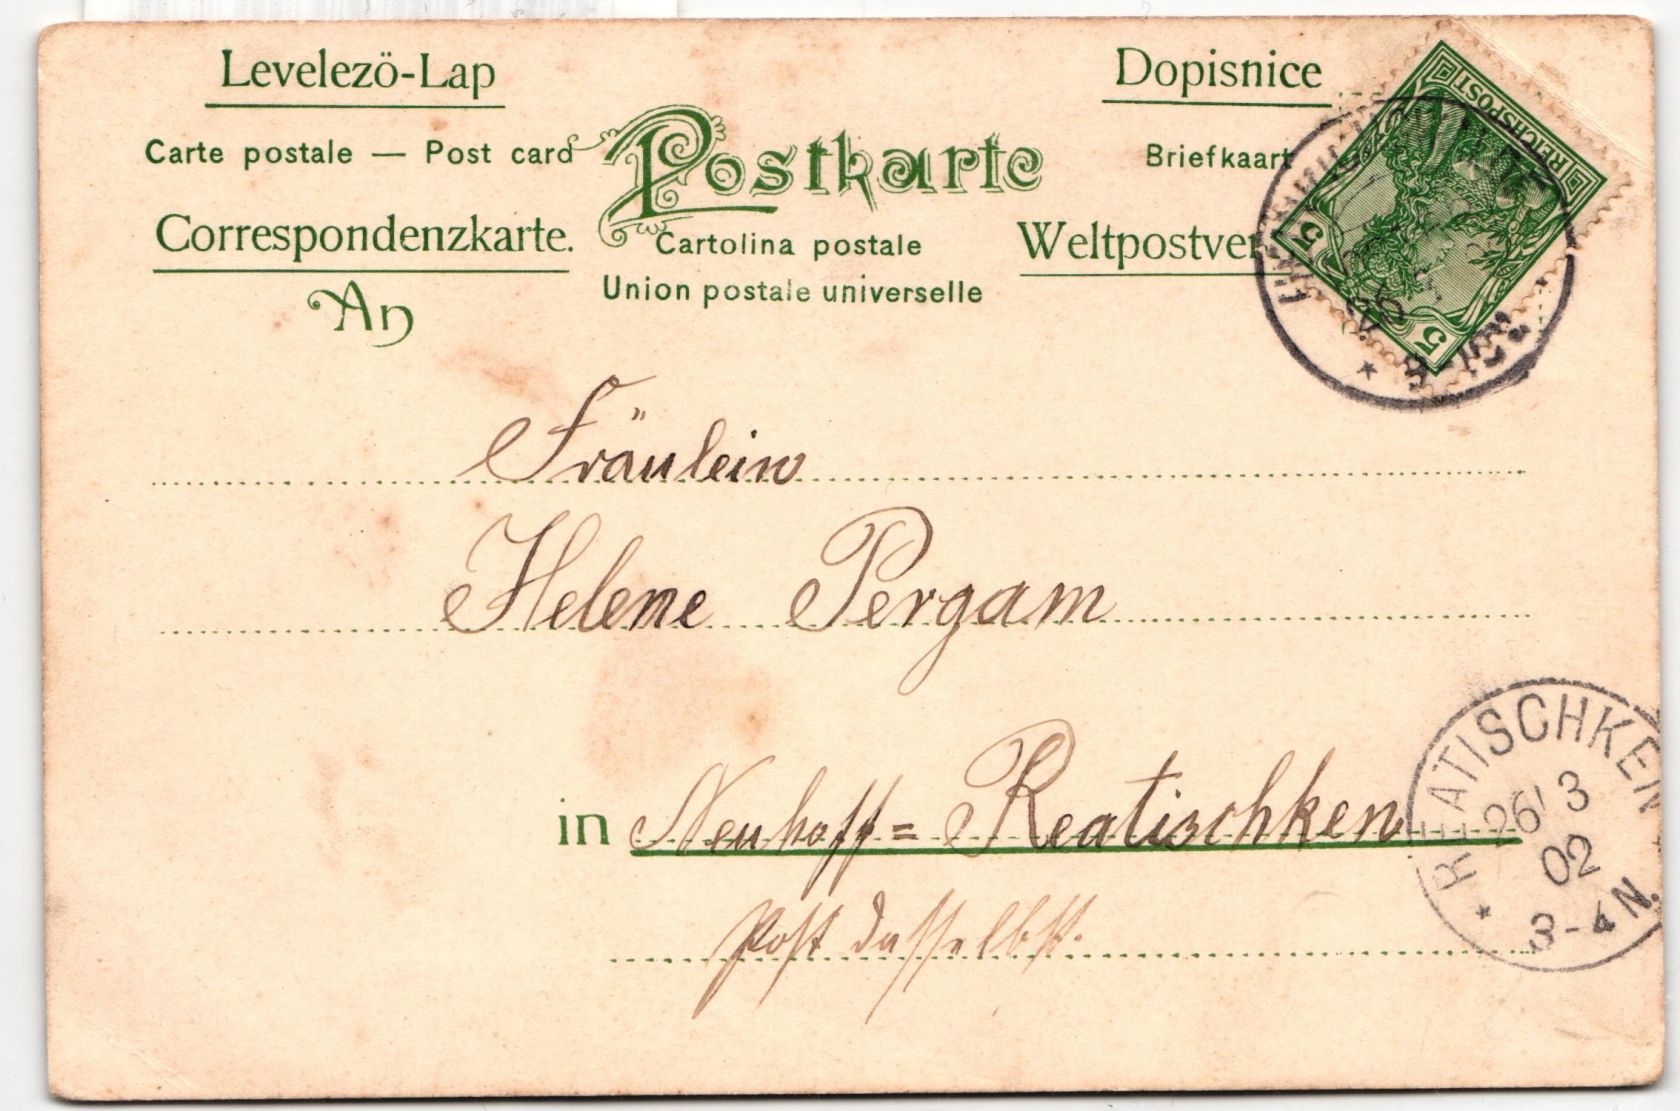 Levelezö-Lap
Dopisnice
Carte postale — Post card
Postkarte
Briefkaart
Correspondenzkarte.
Cartolina postale
Weltpostver
Union postale universelle
An
REICHSPOST
5
5
Fräulein
Helene Pergam
in Neuhoff = Reatischken
Post daselbst.
REATISCHKEN
26/3
02
3-4N.